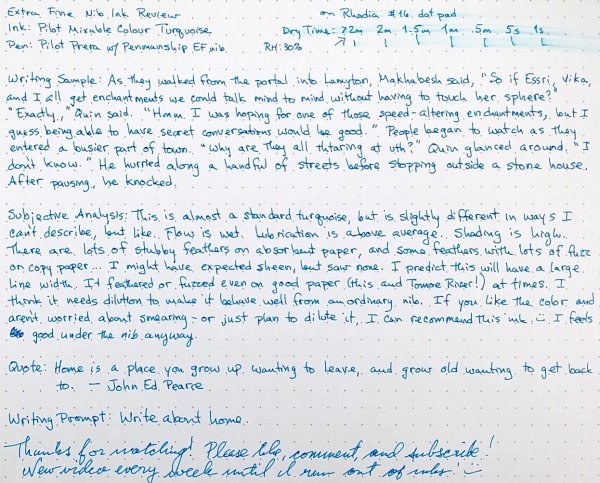 Extra Fine Nib Ink Review on Rhodia #16 dot pad
Ink: Pilot Mixable Colour Turquoise Dry Time: >2m 2m 1.5m 1m .5m 5s 1s
Pen: Pilot Prera w/ Penmanship EF nib RH: 30%
Writing Sample: As they walked from the portal into Lamyton, Makhabesh said, "So if Essri, Vika,
and I all get enchantments we could talk mind to mind without having to touch her sphere?"
"Exactly," Quin said. "Hmm. I was hoping for one of those speed-altering enchantments, but I
guess being able to have secret conversations would be good." People began to watch as they
entered a busier part of town. "Why are they all thtaring at uth?" Quin glanced around. "I
don't know." He hurried along a handful of streets before stopping outside a stone house.
After pausing, he knocked.
Subjective Analysis: This is almost a standard turquoise, but is slightly different in ways I
can't describe, but like. Flow is wet. Lubrication is above average. Shading is high.
There are lots of stubby feathers on absorbent paper, and some feathers with lots of fuzz
on copy paper... I might have expected sheen, but saw none. I predict this will have a large
line width. It feathered or fuzzed even on good paper (this and Tomoe River!) at times. I
think it needs dilution to make it behave well from an ordinary nib. If you like the color and
aren't worried about smearing - or just plan to dilute it, I can recommend this ink. I feels
good under the nib anyway.
Quote: Home is a place you grow up wanting to leave, and grow old wanting to get back
to. - John Ed Pearce
Writing Prompt: Write about home.
Thanks for watching! Please like, comment, and subscribe!
New video every week until I run out of inks!